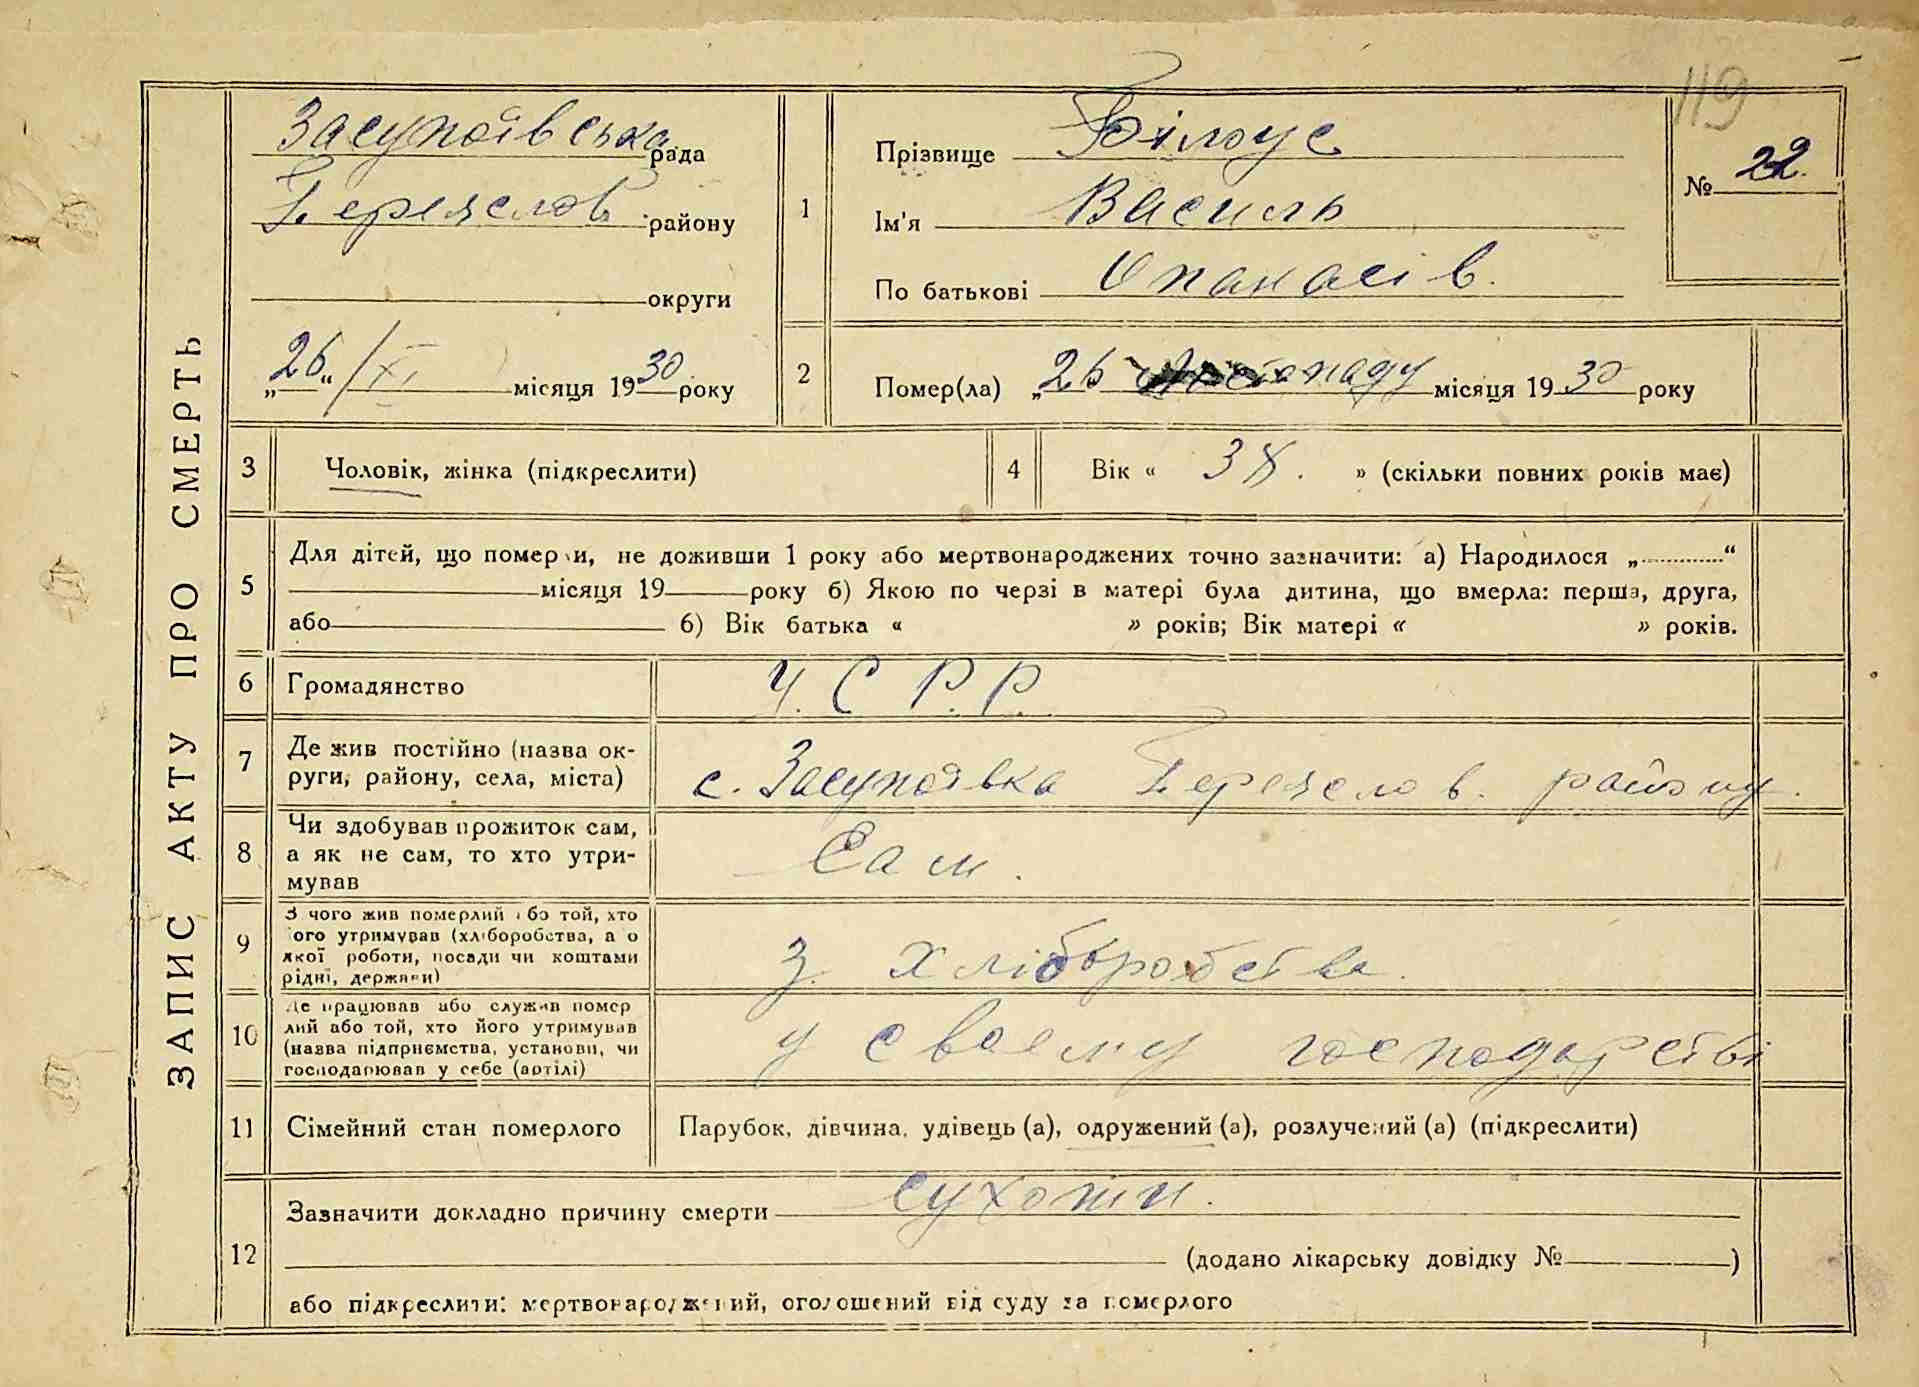 119
ЗАПИС АКТУ ПРО СМЕРТЬ
Засупоївська рада
Березслов. району
округи
„26“ /XI місяця 1930 року
1
Прізвище Білоус
Ім'я Василь
По батькові Опанасів.
№ 22.
2
Помер(ла) „26 листопаду місяця 1930 року
3
Чоловік, жінка (підкреслити)
4
Вік « » (скільки повних років має)
5
Для дітей, що померли, не доживши 1 року або мертвонароджених точно зазначити: а) Народилося „ “
місяця 19 року б) Якою по черзі в матері була дитина, що вмерла: перша, друга,
або 6) Вік батька « » років; Вік матері « » років.
6
Громадянство
У.С.Р.Р.
7
Де жив постійно (назва ок-
руги, району, села, міста)
с. Засупоївка Березслов. району.
8
Чи здобував прожиток сам,
а як не сам, то хто утри-
мував
Сам.
9
З чого жив померлий або той, хто
його утримував (хліборобства, а о
якої роботи, посади чи коштами
рідні, держави)
З хліборобства.
10
Де працював або служив помер
лий або той, хто його утримував
(назва підприємства, установи, чи
господарював у себе (артілі)
у своєму господарстві
11
Сімейний стан померлого
Парубок, дівчина, удівець (а), одружений (а), розлучений (а) (підкреслити)
12
Зазначити докладно причину смерти сухоти.
(додано лікарську довідку № )
або підкреслити: мертвонароджений, оголошений від суду за померлого